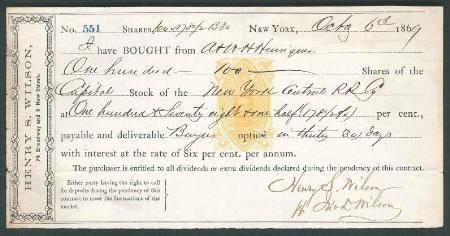 HENRY S. WILSON,
74 Broadway and 9 New Street.
No. 551 SHARES, 100 178½ B30 NEW YORK, Octbr 6th 1869
I have BOUGHT from A & W H Henriques
One hundred — 100 — Shares of the
Capitol Stock of the New York Central RR Co
at One hundred & Seventy eight & one half (178½) per cent.,
payable and deliverable Buyers option in thirty 30 days
with interest at the rate of Six per cent. per annum.
The purchaser is entitled to all dividends or extra dividends declared during the pendency of this contract.
Either party having the right to call
for deposits during the pendency of this
contract to meet the fluctuations of the
market.
Henry S. Wilson
Wilson